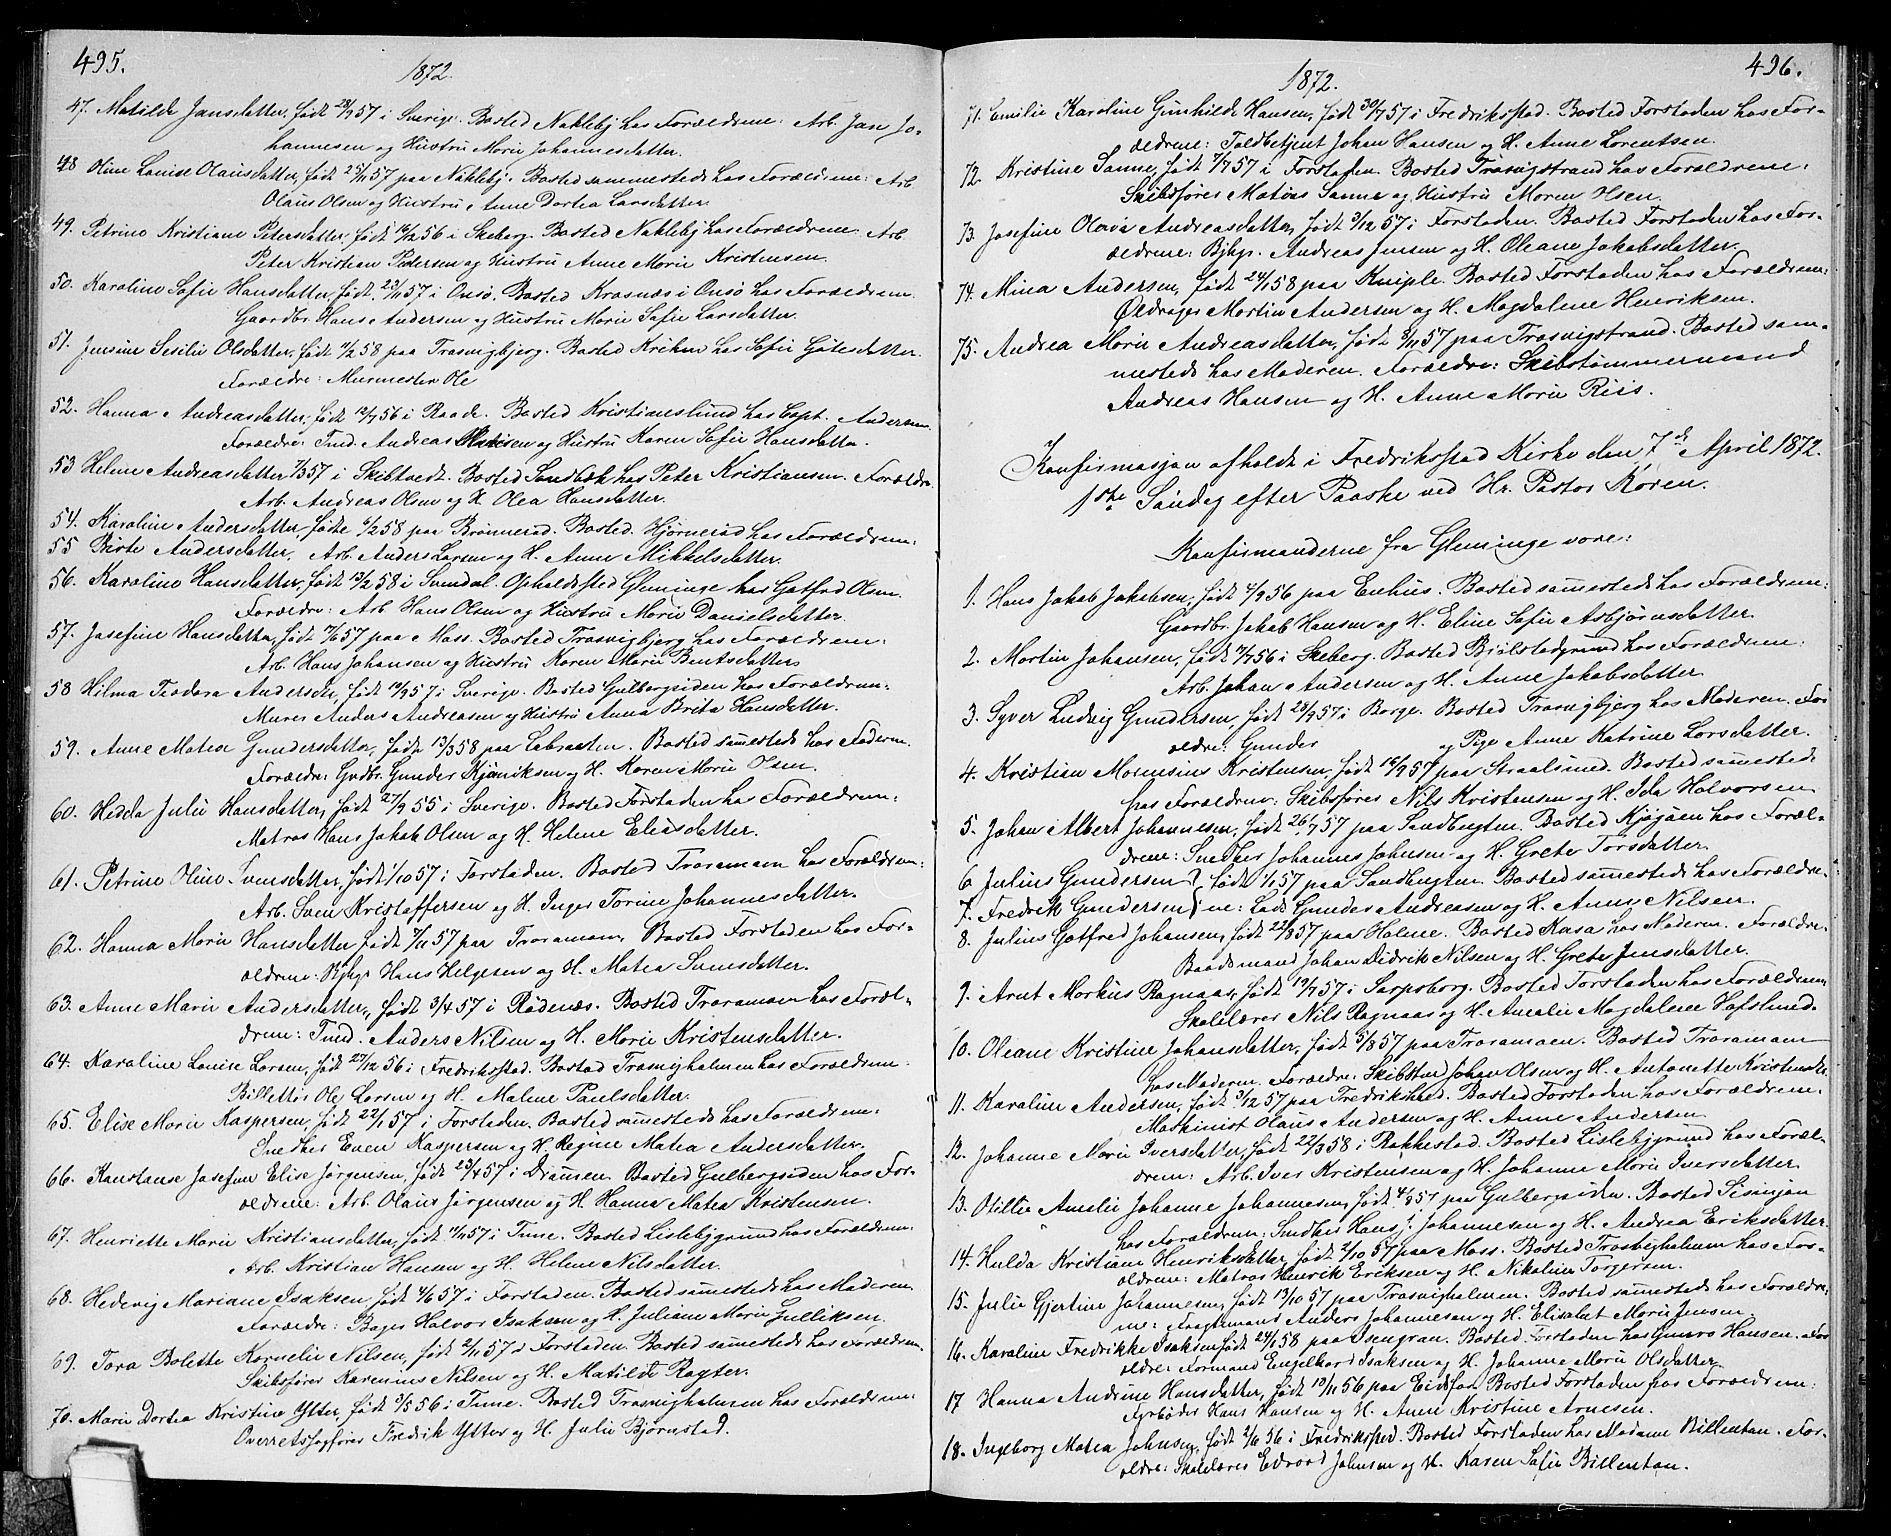 495.
1872.
47. Matilde Jansdatter, født 28/9 57 i Sverige. Bosted Nakleby hos Forældrene: Arb. Jan Jo-
hannesen og Hustru Marie Johannesdatter.
48 Oline Louise Olausdatter, født 25/11 57 paa Nakleby. Bosted sammesteds hos Forældrene: Arb
Olaus Olsen og Hustru Anne Dortea Larsdatter.
49. Petrine Kristiane Petersdatter, født 16/2 56 i Skeberg. Bosted Nakleby hos Forældrene: Arb.
Peter Kristian Pedersen og Hustru Anne Marie Kristensen.
50. Karoline Sofie Hansdatter, født 23/11 57 i Onsø. Bosted Krosnæs i Onsø hos Forældrene
Gaardbr. Hans Andersen og Hustru Marie Sofie Larsdatter.
51. Jensine Sesilie Olsdatter, født 11/2 58 paa Trosvigbjerg. Bosted Kriken hos Sofie Götesdatter.
Forældre: Murmester Ole
52. Hanna Andreasdatter, født 12/7 56 i Raade. Bosted Kristianslund hos Capt. Andersen.
Forældre: Tmd. Andreas og Hustru Karen Sofie Hansdatter.
53 Helene Andreasdatter 7/3 57 i Skibtvedt. Bosted Sandbæk hos Peter Kristiansen. Forældre
Arb. Andreas Olsen og H. Olea Hansdatter.
54. Karoline Andersdatter, fødte 6/2 58 paa Brönnerød. Bosted Hjörnerød hos Forældrene:
55 Birte Andersdatter, Arb. Anders Larsen og H. Anne Mikkelsdatter.
56. Karoline Hansdatter, født 13/2 58 i Svindal. Opholdssted Glemminge hos Gotfred Olsen.
Forældre: Arb Hans Olsen og Hustru Marie Danielsdatter.
57. Josefine Hansdatter, født 7/6 57 paa Moss. Bosted Trosvigbjerg hos Forældrene:
Arb. Hans Johansen og Hustru Karen Marie Berntsdatter
58 Hilma Teodora Andersen, født 19/9 57 i Sverige. Bosted Gulbergsiden hos Forældrene:
Murer Anders Andreasen og Hustru Anna Brita Hansdatter.
59. Anne Matea Gundersdatter, født 13/3 58 paa Labraaten. Bosted samesteds hos Faderen.
Forældre: Grdbr. Gunder Kjöniksen og H. Karen Marie Olsen.
60. Hedda Julie Hansdatter, født 27/9 55 i Sverige. Bosted Forstaden hos Forældrene:
Matros Hans Jakob Olsen og H. Helene Eliasdatter.
61. Petrine Oline Svensdatter, født 1/10 57 i Forstaden. Bosted Traramoen hos Forældrene:
Arb. Sven Kristoffersen og H. Inger Torine Johannesdatter.
62. Hanna Marie Hansdatter født 7/11 57 paa Traramoen. Bosted Forstaden hos For-
ældrene: Bjhgr Hans Helgesen og H. Matea Svensdatter.
63. Anne Marie Andersdatter, født 3/4 57 i Rödenæs. Bosted Traramoen hos Foræl-
drene: Tmd. Anders Nilsen og H. Marie Kristensdatter.
64. Karoline Louise Larsen, født 27/12 56 i Fredrikstad. Bosted Trosvigholmen hos Forældrene.
Billettör Ole Larsen og H. Malene Paulsdatter.
65. Elise Marie Kaspersen, født 22/1 57 i Forstaden. Bosted samesteds hos Forældrene:
Snedker Even Kaspersen og H. Regine Matea Andersdatter.
66. Konstanse Josefine Elise Jörgensen, født 23/4 57 i Dramen. Bosted Gulbergsiden hos For-
ældrene: Arb. Olaus Jörgensen og H. Hanna Matea Kristensen.
67. Henriette Marie Kristiansdatter, født 11/11 57 i Tune. Bosted Lislebygrund hos Forældrene:
Arb. Kristian Hansen og H. Helene Nilsdatter.
68. Hedevig Mariane Isaksen, født 4/6 57 i Forstaden. Bosted samesteds hos Moderen
Forældre: Bager Halvor Isaksen og H. Juliane Marie Gulliksen.
69. Tora Bolette Kornelie Nilsen, født 2/11 57 i Forstaden. Bosted samesteds hos Forældrene.
Skibsfører Karenius Nilsen og H. Matilde Rogter.
70. Marie Dortea Kristine Ytter, født 3/5 56 i Tune. Bosted Trosvigholmen hos Forældrene:
Overretssagfører Fredrik Ytter og H. Julie Bjørnstad.
496.
1872.
71. Emilie Karoline Gunhilde Hansen, født 30/7 57 i Fredrikstad. Bosted Forstaden hos For-
ældrene: Toldbetjent Johan Hansen og H. Anne Lorentsen.
72. Kristine Sanne, født 7/7 57 i Forstaden. Bosted Trosvigstrand hos Forældrene:
Skibsfører Matias Sanne og Hustru Maren Olsen.
73. Josefine Olava Andreasdatter, født 9/12 57 i Forstaden. Bosted Forstaden hos For-
ældrene: Bjhgr. Andreas Jensen og H. Oleane Jakobsdatter.
74. Mina Andersen, født 24/1 58 paa Kniple. Bosted Forstaden hos Forældrene:
Øldrager Martin Andersen og H. Magdalene Henriksen.
75. Andrea Marie Andreasdatter, født 8/11 57 paa Trosvigstrand. Bosted sam-
mesteds hos Moderen. Forældre: Skibstømmermand
Andreas Hansen og H. Anne Marie Riis.
Konfirmasjon afholdt i Fredrikstad Kirke den 7de April 1872.
1ste Søndag efter Paaske ved Hr. Pastor Koren.
Konfirmanderne fra Gleminge vare:
1. Hans Jakob Jakobsen, født 4/9 56 paa Enhus. Bosted samesteds hos Forældrene:
Gaardbr. Jakob Hansen og H. Eline Sofie Asbjørnsdatter.
2. Martin Johansen, født 7/7 56 i Skeberg. Bosted Bjølstadgrund hos Forældrene:
Arb. Johan Andersen og H. Anne Jakobsdatter.
3. Syver Ludvig Gundersen, født 28/9 57 i Borge. Bosted Trosvigbjerg hos Moderen. For
ældre: Gunder og Pige Anne Katrine Larsdatter.
4. Kristian Morensius Kristensen, født 16/9 57 paa Straalsund. Bosted samesteds
hos Forældrene: Skibsfører Nils Kristensen og H. Ida Halvorsen.
5. Johan Albert Johannesen, født 26/7 57 paa Sandbugten. Bosted Kjøgøen hos Foræl-
drene: Snedker Johannes Johnsen og H. Grete Torsdatter.
6 Julius Gundersen } født 1/1 57 paa Sandbugten. Bosted samesteds hos Forældre-
7. Fredrik Gundersen } ne: Lods Gunder Andreasen og H. Anne Nilsen.
8. Julius Gotfred Johansen, født 22/8 57 paa Holme. Bosted Kasa hos Moderen. Forældre:
Baadsmand Johan Didrik Nilsen og H. Grete Jensdatter.
9. Arnt Markus Ragnaas, født 19/7 57 i Sarpsborg. Bosted Forstaden hos Forældrene,
Skolelærer Nils Ragnaas og H. Amalie Magdalene Hafslund.
10. Oleane Kristine Johansdatter, født 5/8 57 paa Traramoen. Bosted Traramoen
hos Moderen. Forældre: Skibstmr Johan Olsen og H. Antonette Kristensdtr.
11. Karoline Andersen, født 3/12 57 paa Fredrikshald. Bosted Forstaden hos Forældrene.
Maskinist Olaus Andersen og H. Anne Andersen.
12. Johanne Marie Iversdatter, født 22/3 58 i Rakkestad. Bosted Lislebygrund hos Foræl-
drene: Arb. Iver Kristensen og H. Johanne Marie Iversdatter.
13. Otillie Amalie Johanne Johannesen, født 4/9 57 paa Gulbergsiden. Bosted Sisinjan
hos Forældrene: Snedker Hans J. Johannesen og H. Andrea Eriksdatter.
14. Hulda Kristiane Henriksdatter, født 7/10 57 paa Moss. Bosted Trosvigholmen hos For-
ældrene: Matros Henrik Eriksen og H. Nikoline Torgersen.
15. Julie Gjertine Johannesen, født 13/10 57 paa Trosvigholmen. Bosted samesteds hos Forældre:
ne: Fragtemand Anders Johannesen og H. Elisabet Marie Jensen.
16. Karoline Fredrikke Isaksen født 24/1 58 paa Isengran. Bosted Forstaden hos Gunerø Hansen. For
ældre: Formand Engelhard Isaksen og H. Johanne Marie Olsdatter.
17 Hanna Andrine Hansdatter, født 19/11 56 paa Eidsfos. Bosted Forstaden hos Forældrene:
Fyrbøder Hans Hansen og H. Anne Kristine Arnesen.
18. Ingeborg Matea Johnsen, født 2/6 56 i Fredrikstad. Bosted Forstaden hos Madame Billenton. For-
ældre: Skolelærer Edvard Johnsen og H. Karen Sofie Billentan.